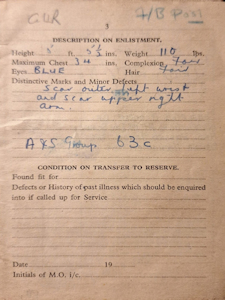 GUR
A/B Post
3
DESCRIPTION ON ENLISTMENT.
Height 5 ft. 5½ ins. Weight 110 lbs.
Maximum Chest 34 ins. Complexion Fair
Eyes BLUE Hair Fair
Distinctive Marks and Minor Defects
Scar outer left wrist
and scar upper right
arm.
A&S Group 63c
CONDITION ON TRANSFER TO RESERVE.
Found fit for
Defects or History of past illness which should be enquired
into if called up for Service
Date 19
Initials of M.O. i/c.